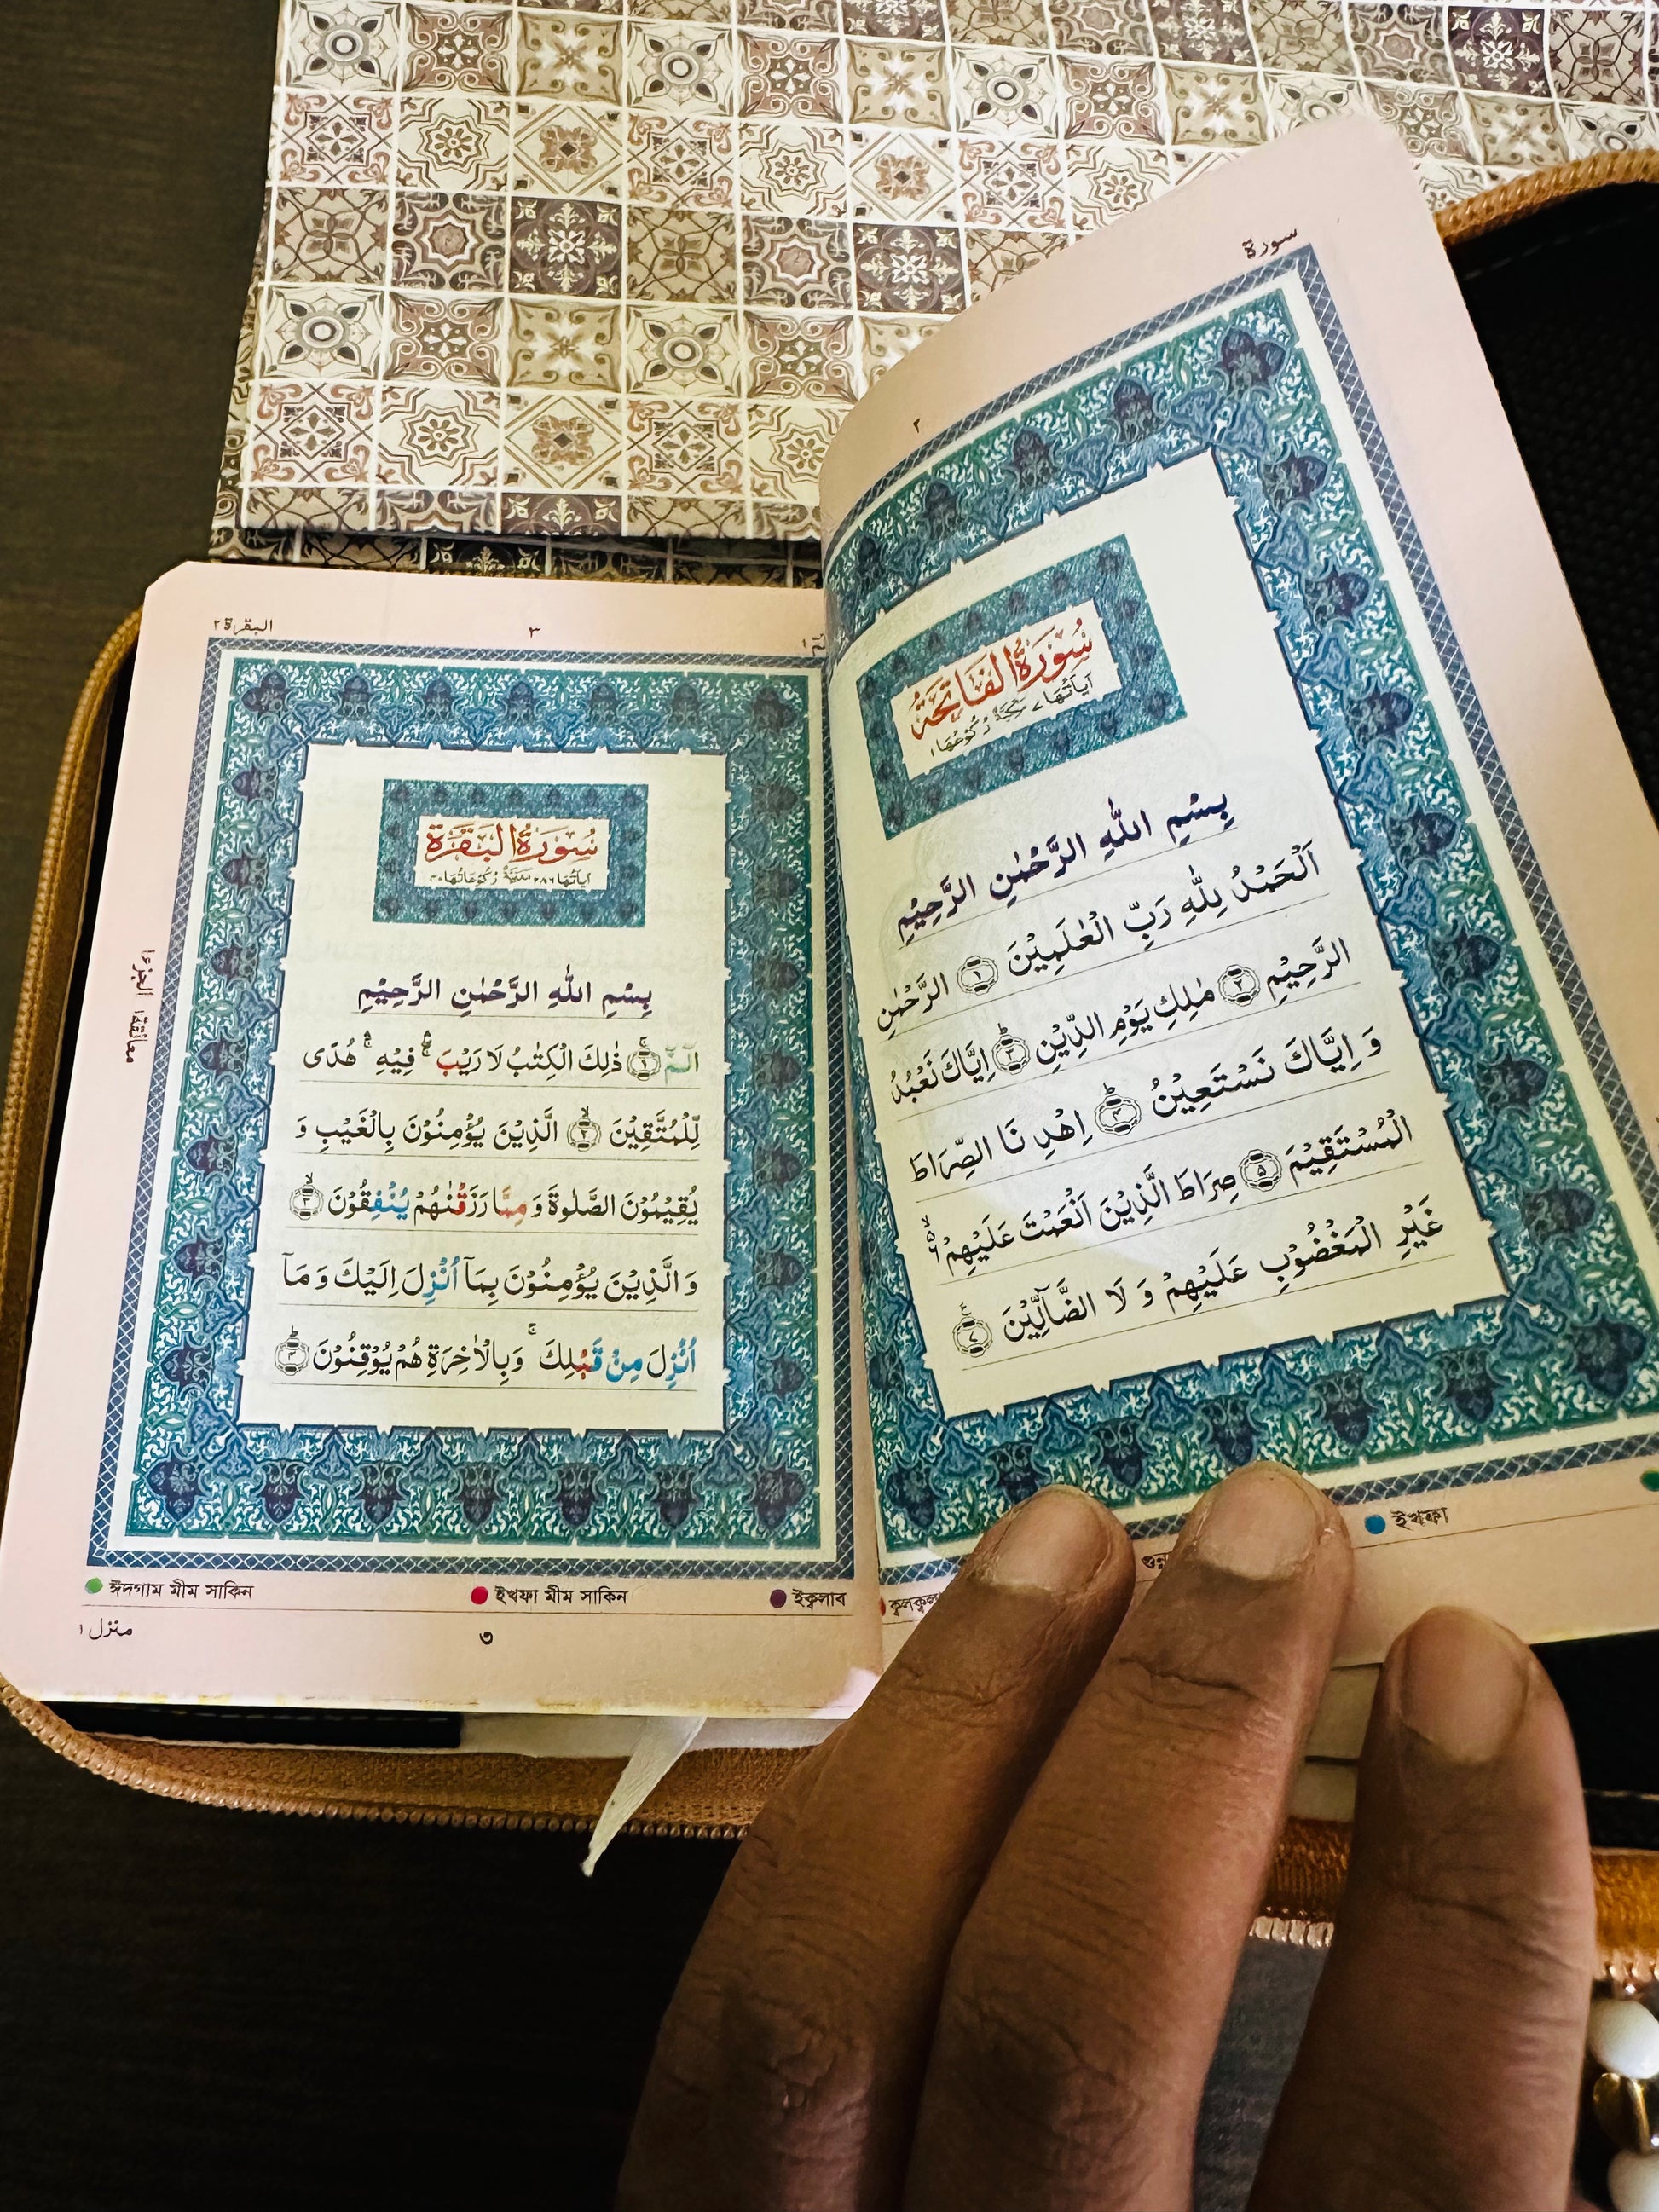 سورة
٢
سُوْرَةُ الْفَاتِحَةِ
اٰيَاتُهَا ٧ مَكِّيَّةٌ رُكُوْعُهَا ١
بِسْمِ اللّٰهِ الرَّحْمٰنِ الرَّحِيْمِ
اَلْحَمْدُ لِلّٰهِ رَبِّ الْعٰلَمِيْنَ ١ الرَّحْمٰنِ
الرَّحِيْمِ ٢ مٰلِكِ يَوْمِ الدِّيْنِ ٣ اِيَّاكَ نَعْبُدُ
وَ اِيَّاكَ نَسْتَعِيْنُ ۴ اِهْدِ نَا الصِّرَاطَ
الْمُسْتَقِيْمَ ۵ صِرَاطَ الَّذِيْنَ اَنْعَمْتَ عَلَيْهِمْ ۶
غَيْرِ الْمَغْضُوْبِ عَلَيْهِمْ وَ لَا الضَّآلِّيْنَ ٧
ইখফা
البقرة ٢
٣
سُوْرَةُ الْبَقَرَةِ
اٰيَاتُهَا ٢٨٦ مَدَنِيَّةٌ رُكُوْعَاتُهَا ۴٠
بِسْمِ اللّٰهِ الرَّحْمٰنِ الرَّحِيْمِ
الٓمّٓ ١ ذٰلِكَ الْكِتٰبُ لَا رَيْبَ فِيْهِ هُدًى
لِّلْمُتَّقِيْنَ ٢ الَّذِيْنَ يُؤْمِنُوْنَ بِالْغَيْبِ وَ
يُقِيْمُوْنَ الصَّلٰوةَ وَ مِمَّا رَزَقْنٰهُمْ يُنْفِقُوْنَ ٣
وَ الَّذِيْنَ يُؤْمِنُوْنَ بِمَآ اُنْزِلَ اِلَيْكَ وَ مَآ
اُنْزِلَ مِنْ قَبْلِكَ وَبِالْاٰخِرَةِ هُمْ يُوْقِنُوْنَ ۴
معانقة ١ الجزء ١
ঈদগাম মীম সাকিন ইখফা মীম সাকিন ইক্বলাব
منزل ١
৩